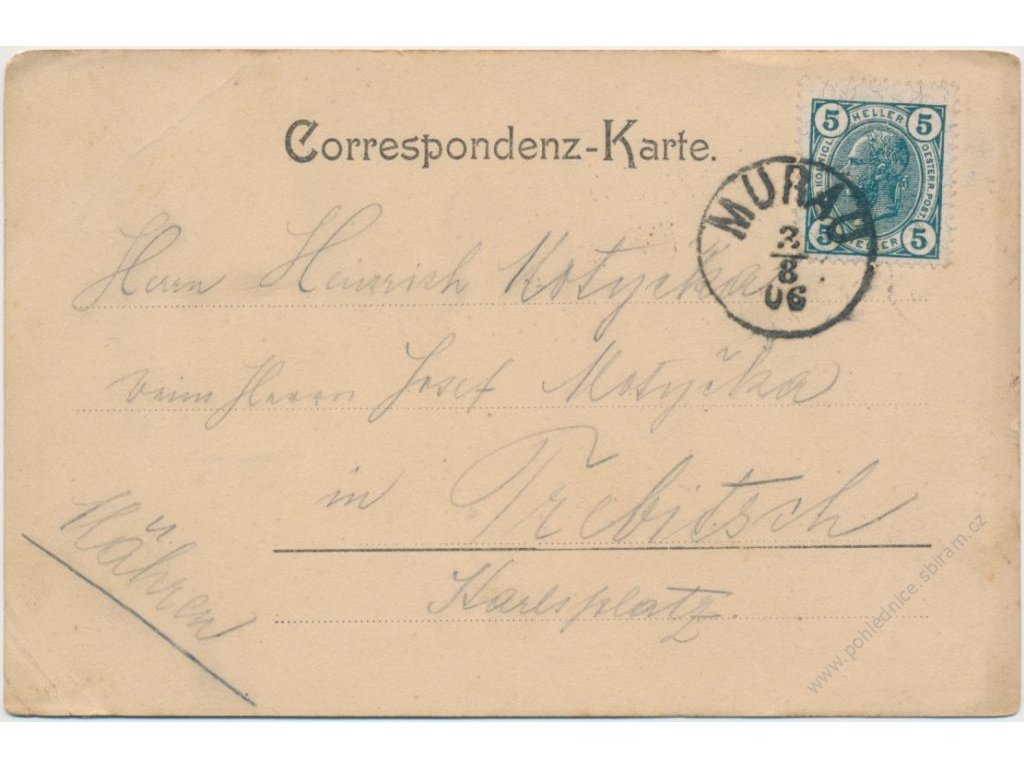 Correspondenz-Karte.
5 HELLER 5
KÖNIGL. OESTERR. POST.
5 HELLER 5
MURAU
3
8
06
Herrn Heinrich Motyčka
beim Herrn Josef Motyčka
in Trebitsch
Karlsplatz.
Mähren
www.pohlednice.sbiram.cz